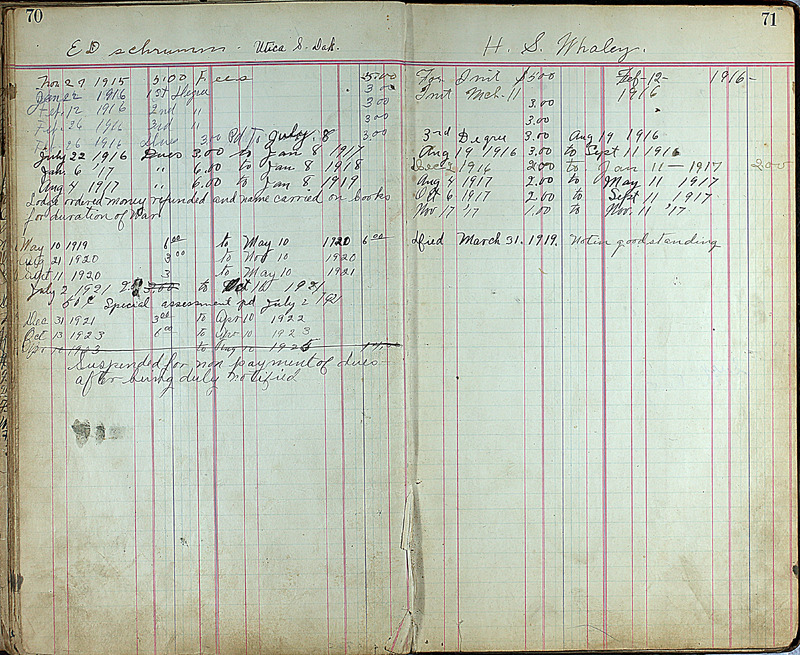 70
ED Schrumm. Utica S. Dak.
Nov 27 1915 5.00 Fees 5.00
Jan 22 1916 1st Degree 3.00
Feb. 12 1916 2nd " 3.00
Feb. 26 1916 3rd " 3.00
Feb 26 1916 Dues 3.00 Pd To July. 8 3.00
July 22 1916 Dues 3.00 to Jan 8 1917
Jan. 6 '17 " 6.00 to Jan 8 1918
Aug 4 1917 " 6.00 to Jan 8 1919
Lodge ordered money refunded and name carried on books
for duration of War
May 10 1919 6.00 to May 10 1920 6.00
Aug 21 1920 3.00 to Nov 10 1920
Sept 11 1920 3 to May 10 1921
July 2 1921 3.00 to Oct 10 1921
50¢ Special assessment pd July 2 1921
Dec 31 1921 3.00 to Apr 10 1922
Oct 13 1923 6.00 to Apr 10 1923
1923 to Aug 10 1925
Suspended for non payment of dues
after being duly notified
71
H. S. Whaley.
For Init $5.00 Feb-12- 1916-
Init Mch. 11 1916
3.00
3.00
3rd Degree 3.00 Aug 19 1916
Aug 19 1916 3.00 to Sept 11 1916
Dec 2 1916 2.00 to Jan 11-1917 2.00
Aug 4 1917 2.00 to May 11 1917
Oct 6 1917 2.00 to Sept 11 1917
Nov 17 '17 1.00 to Nov. 11 '17.
Died March 31. 1919. Not in good standing